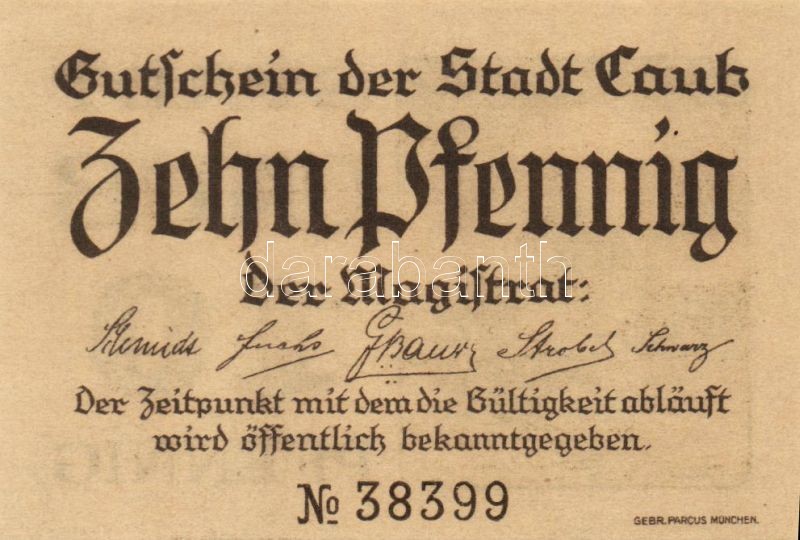 Gutschein der Stadt Caub
Zehn Pfennig
Der Magistrat:
darabanth
Schmidt Fuchs Strobel Schwarz
Der Zeitpunkt mit dem die Gültigkeit abläuft
wird öffentlich bekanntgegeben.
No 38399
GEBR. PARCUS MÜNCHEN.